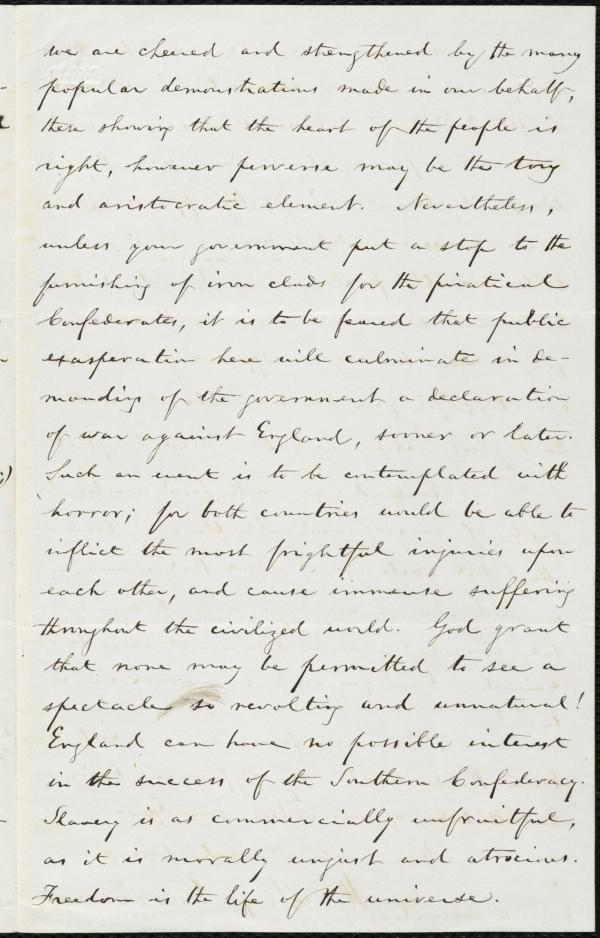 we are cheered and strengthened by the many
popular demonstrations made in our behalf,
these showing that the heart of the people is
right, however perverse may be the tory
and aristocratic element. Nevertheless,
unless your government put a stop to the
furnishing of iron clads for the piratical
Confederates, it is to be feared that public
exasperation here will culminate in de-
manding of the government a declaration
of war against England, sooner or later.
Such an event is to be contemplated with
horror; for both countries would be able to
inflict the most frightful injuries upon
each other, and cause immense suffering
throughout the civilized world. God grant
that none may be permitted to see a
spectacle so revolting and unnatural!
England can have no possible interest
in the success of the Southern Confederacy.
Slavery is as commercially unfruitful,
as it is morally unjust and atrocious.
Freedom is the life of the universe.